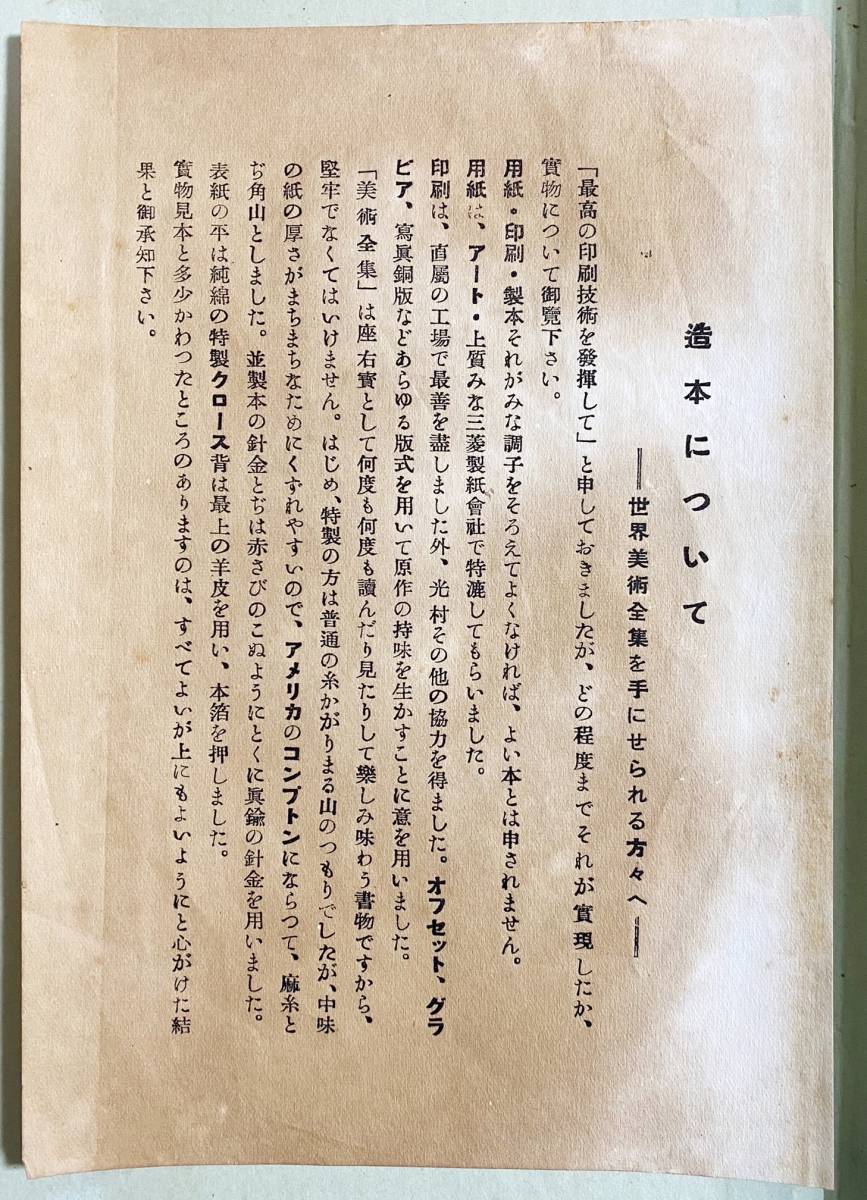 造本について
――世界美術全集を手にせられる方々へ――
「最高の印刷技術を發揮して」と申しておきましたが、どの程度までそれが實現したか、
實物について御覽下さい。
用紙・印刷・製本それがみな調子をそろえてよくなければ、よい本とは申されません。
用紙は、アート・上質みな三菱製紙會社で特漉してもらいました。
印刷は、直屬の工場で最善を盡しました外、光村その他の協力を得ました。オフセット、グラ
ビア、寫眞銅版などあらゆる版式を用いて原作の持味を生かすことに意を用いました。
「美術全集」は座右寳として何度も何度も讀んだり見たりして樂しみ味わう書物ですから、
堅牢でなくてはいけません。はじめ、特製の方は普通の糸かがりまる山のつもりでしたが、中味
の紙の厚さがまちまちなためにくずれやすいので、アメリカのコンプトンにならつて、麻糸と
ぢ角山としました。並製本の針金とぢは赤さびのこぬようにとくに眞鍮の針金を用いました。
表紙の平は純綿の特製クロース背は最上の羊皮を用い、本箔を押しました。
實物見本と多少かわつたところのありますのは、すべてよいが上にもよいようにと心がけた結
果と御承知下さい。